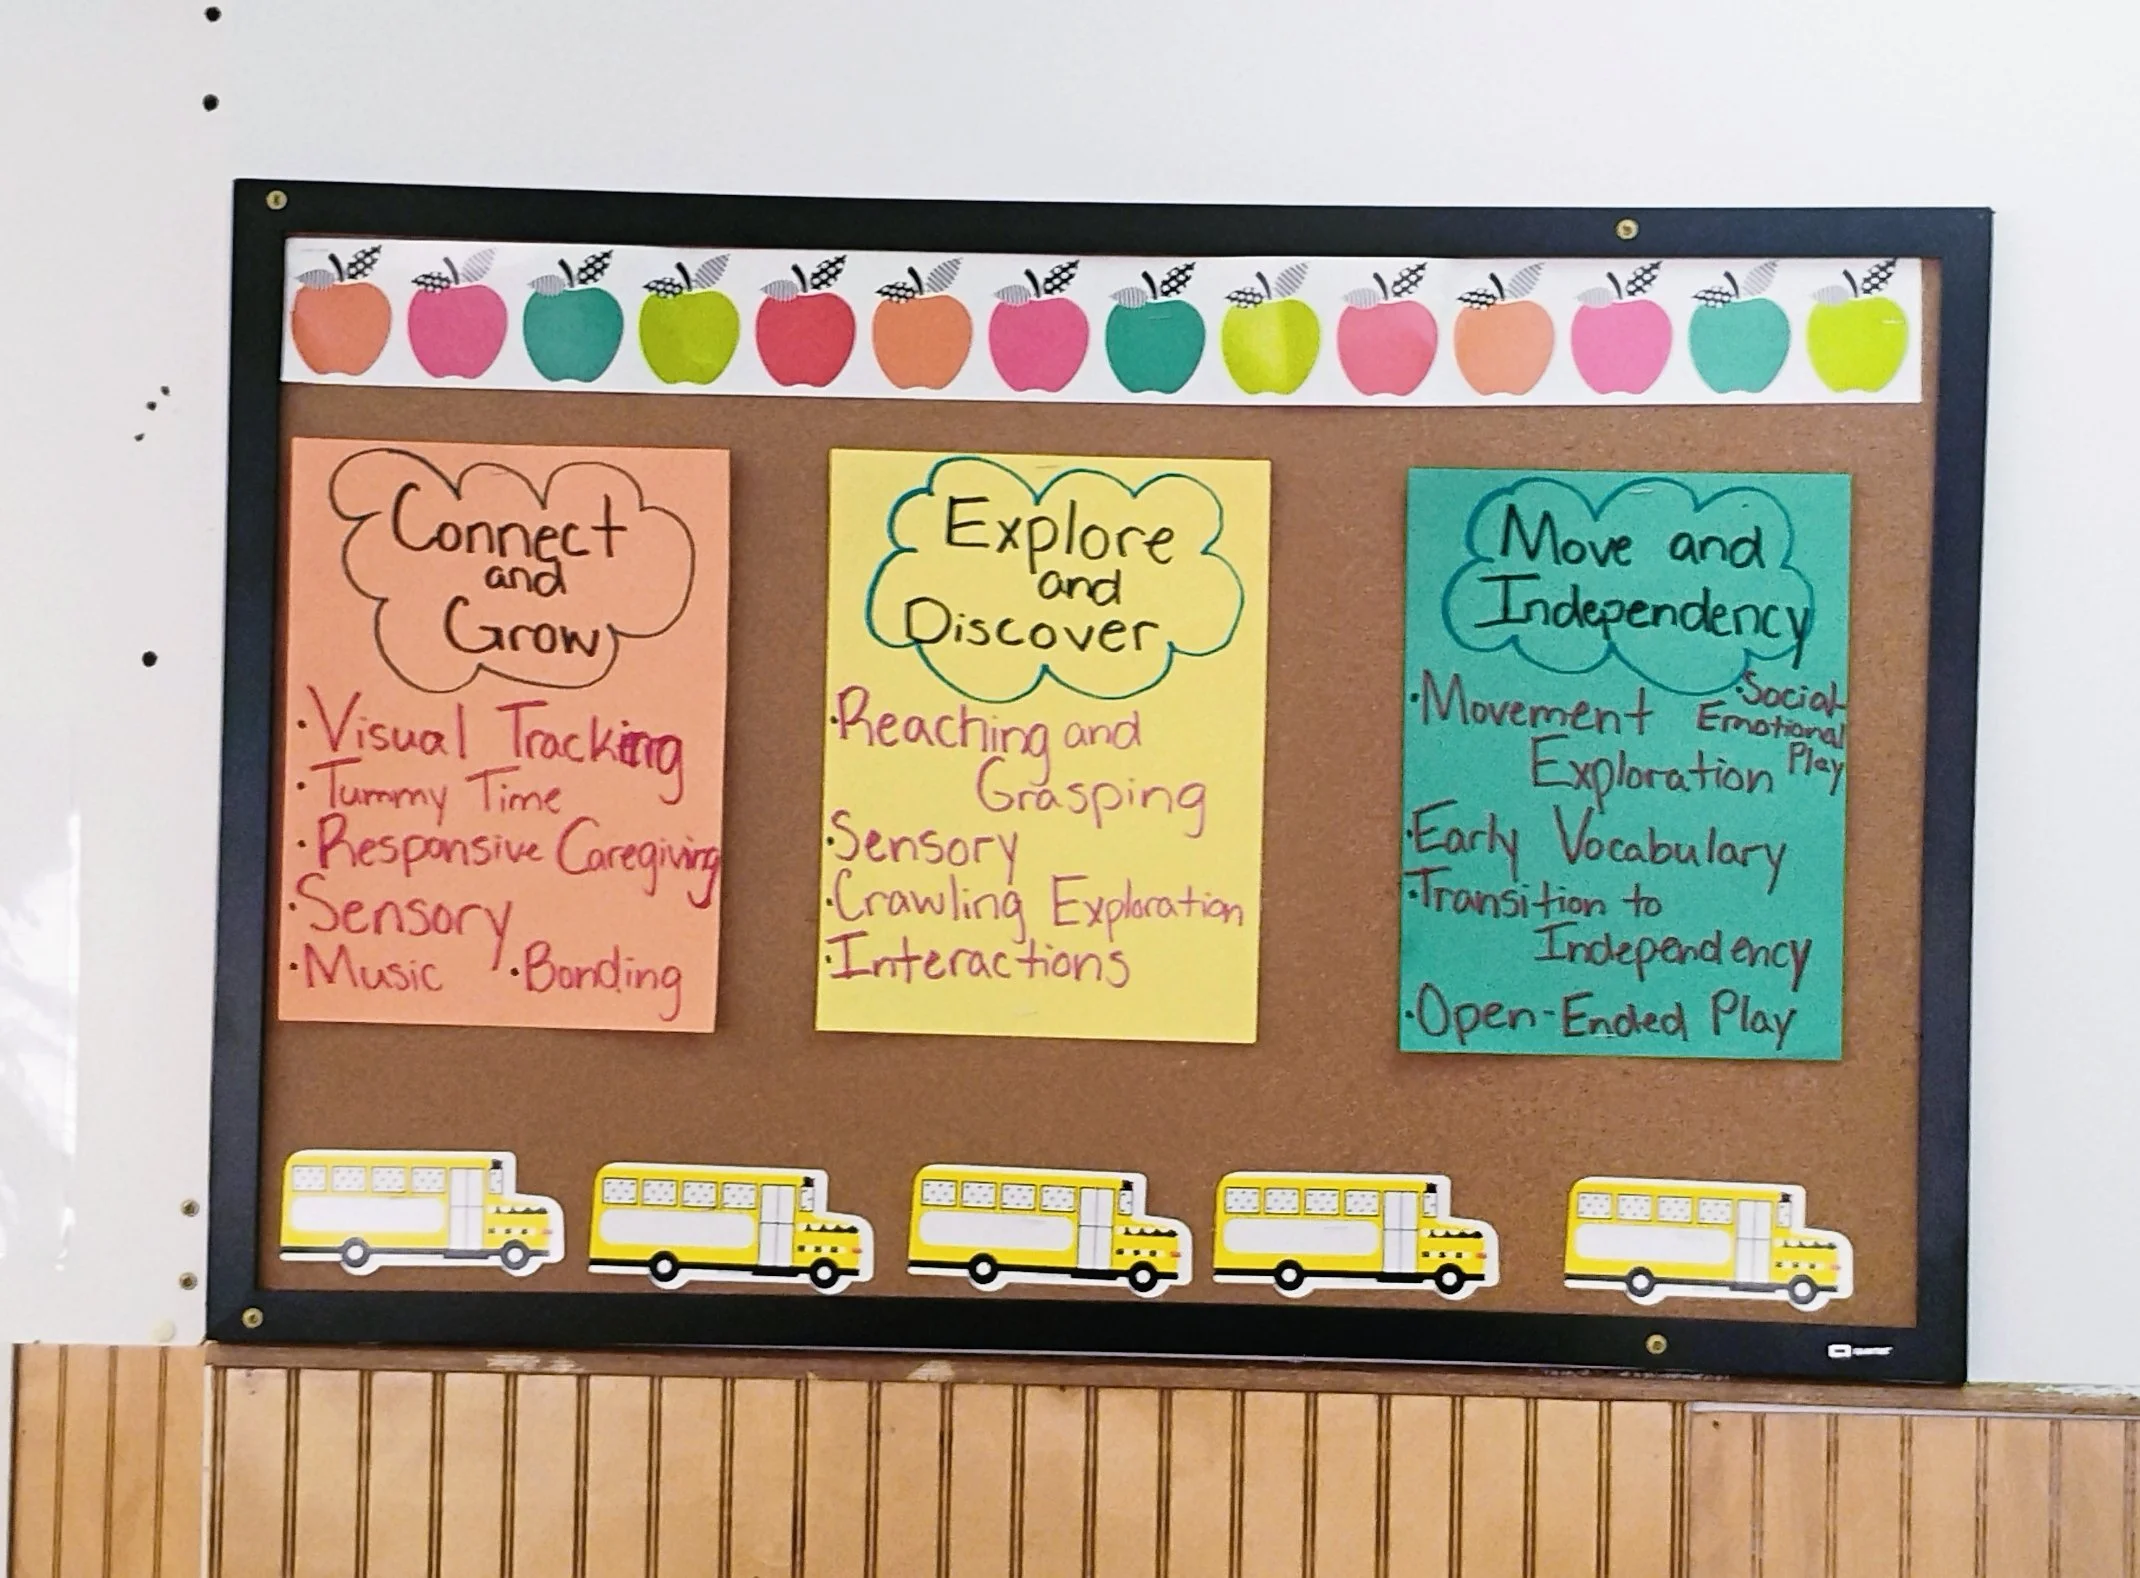 Connect
and
Grow
·Visual Tracking
·Tummy Time
·Responsive Caregiving
·Sensory
·Music ·Bonding
Explore
and
Discover
·Reaching and
Grasping
·Sensory
·Crawling Exploration
·Interactions
Move and
Independency
·Movement
Exploration
·Social-
Emotional
Play
·Early Vocabulary
·Transition to
Independency
·Open-Ended Play